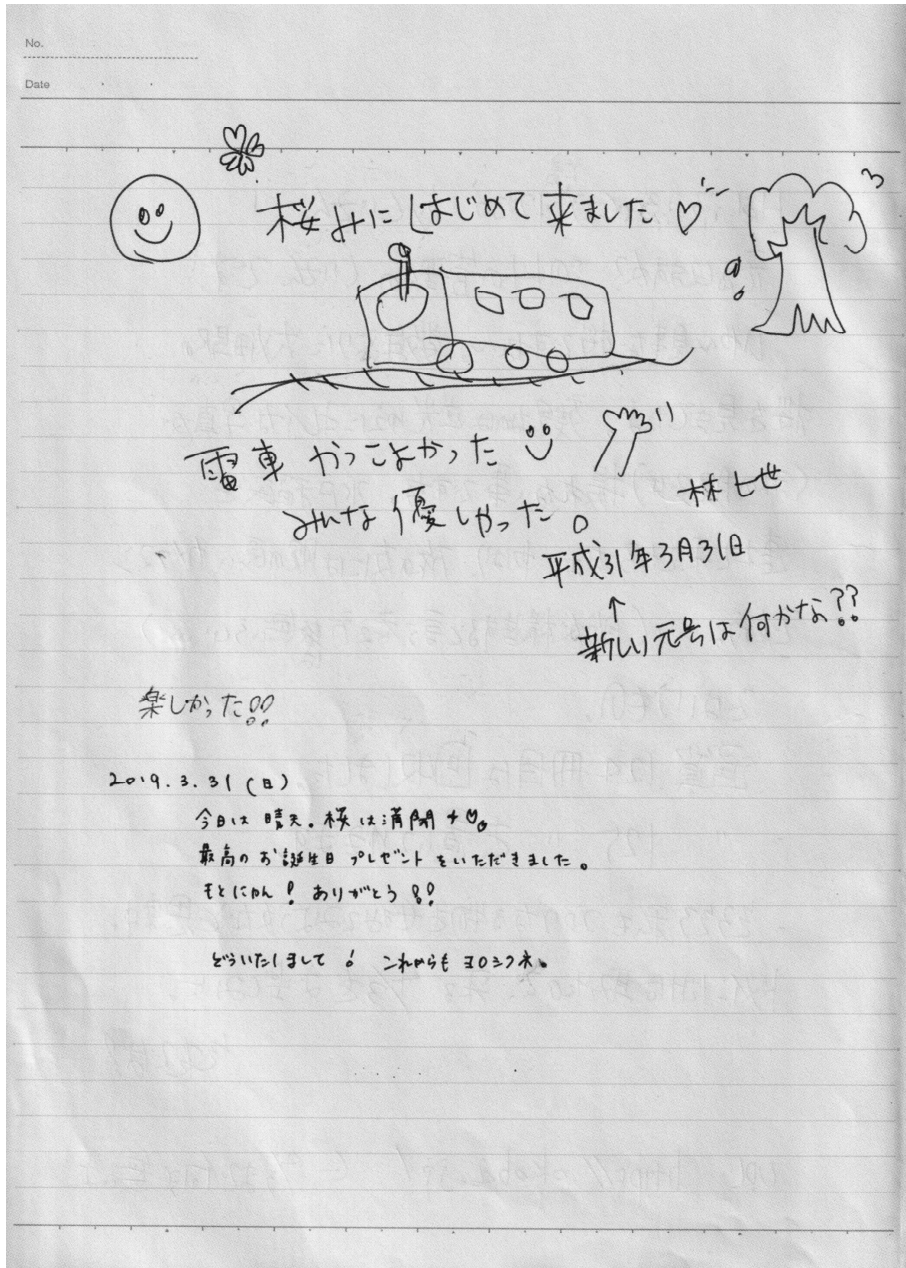 No.
Date
桜みにはじめて来ました♡
電車かっこよかった
みんな優しかった。
林七世
平成31年3月31日
↑
新しい元号は何かな??
楽しかった!!
2019.3.31(日)
今日は晴天。桜は満開
最高のお誕生日プレゼントをいただきました。
もとにゃん!ありがとう!!
どういたしまして! これからもヨロシクネ。